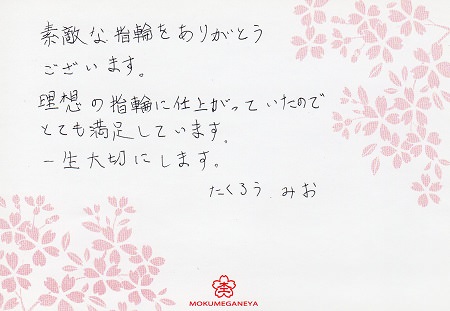 素敵な指輪をありがとう
ございます。
理想の指輪に仕上がっていたので
とても満足しています。
一生大切にします。
たくろう みお
MOKUMEGANEYA